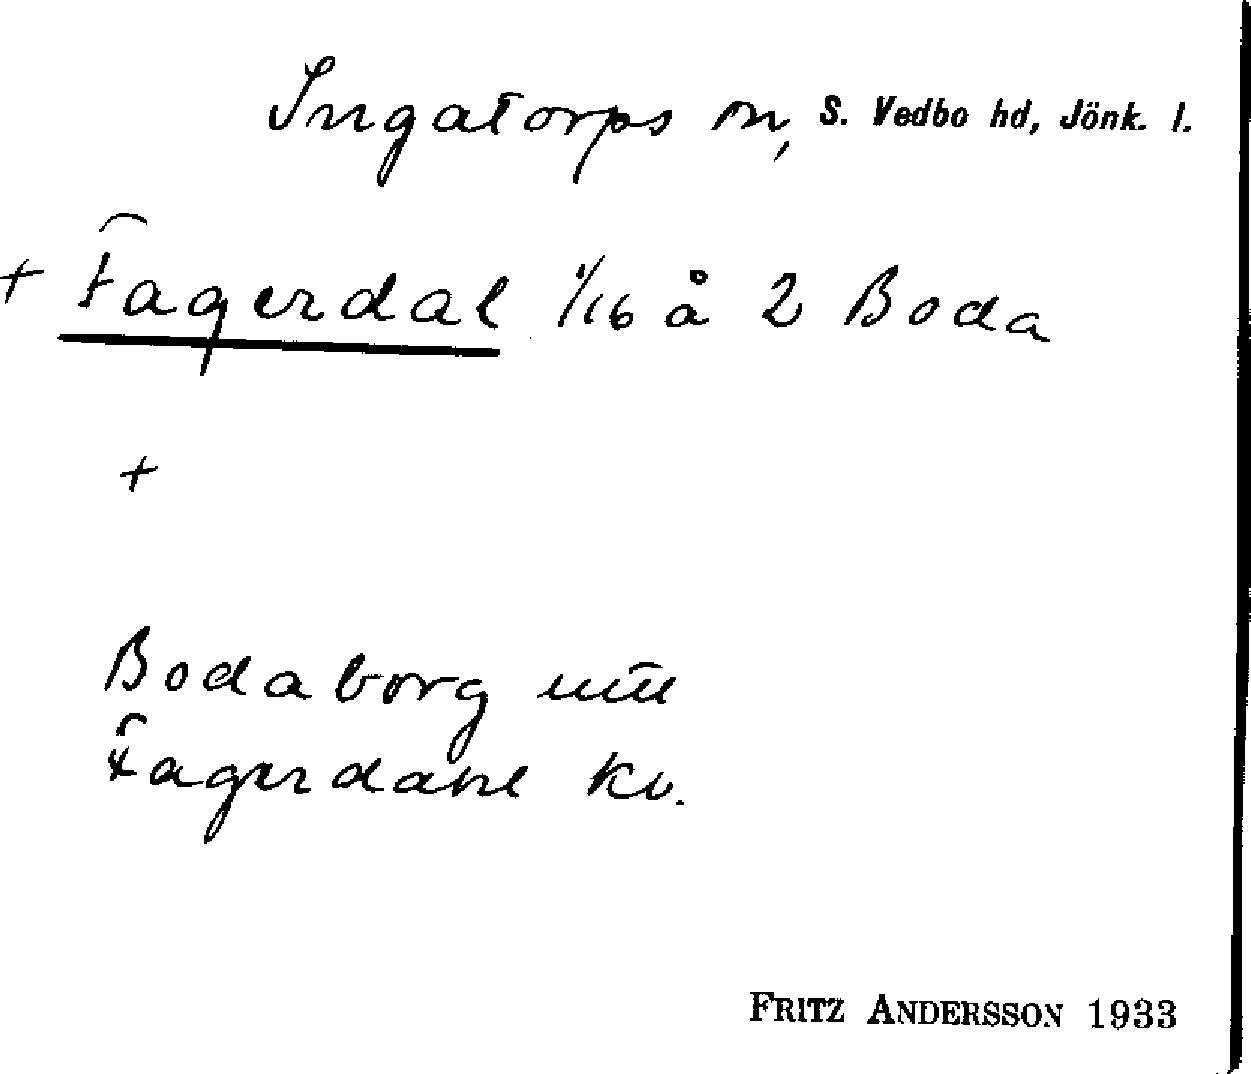 Ingatorps sn, S. Vedbo hd, Jönk. l.
+ Fagerdal 1/16 å 2 Boda
+
Bodaborg
Fagerdahl kv.
FRITZ ANDERSSON 1933